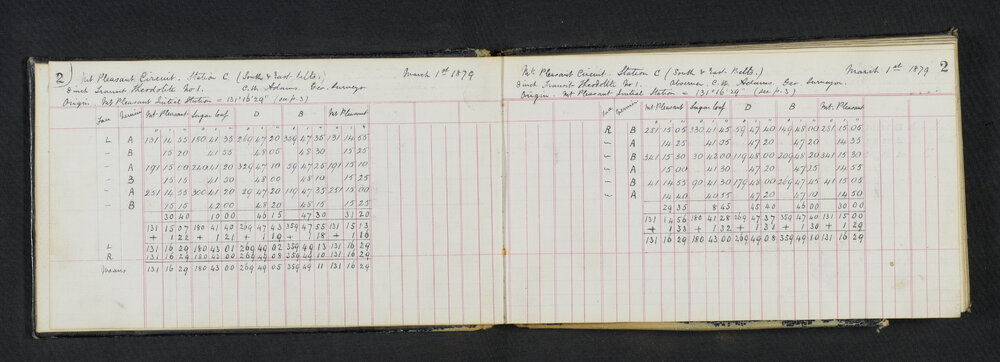 2
Mt Pleasant Circuit. Station C (South & East belts.) March 1st 1879
8 inch Transit Theodolite No 1. C.W. Adams. Geo. Surveyor
Origin. Mt Pleasant Initial Station = 131°16'29" (see p. 3)
Face Vernier Mt Pleasant Sugar loaf D B Mt Pleasant
L A 131 14 55 180 41 35 269 47 20 359 47 35 131 14 55
" B 15 20 41 55 48 05 48 30 15 25
" A 191 15 00 240 41 20 329 47 10 59 47 25 191 15 10
" B 15 15 41 50 48 00 48 10 15 25
" A 251 14 55 300 41 20 29 47 20 119 47 35 251 15 00
" B 15 15 42 00 48 20 48 15 15 25
30 40 10 00 46 15 47 30 31 20
131 15 07 180 41 40 269 47 43 359 47 55 131 15 13
+ 1 22 + 1 21 + 1 19 + 1 18 + 1 16
L 131 16 29 180 43 01 269 49 02 359 49 13 131 16 29
R 131 16 29 180 43 00 269 49 08 359 49 10 131 16 29
Means 131 16 29 180 43 00 269 49 05 359 49 11 131 16 29
2
Mt. Pleasant Circuit. Station C (South & East Belts.) March 1st 1879
8 inch Transit Theodolite No 1. Observer C.W. Adams. Geo Surveyor.
Origin. Mt Pleasant Initial Station = 131°16'29" (see p. 3)
Face Vernier Mt Pleasant Sugar loaf D B Mt. Pleasant
R B 251 15 05 330 41 45 59 47 40 149 48 00 251 15 05
" A 14 25 41 05 47 20 47 20 14 35
" B 341 15 30 30 42 00 119 48 00 209 48 20 341 15 30
" A 15 00 41 30 47 20 47 25 14 55
" B 41 14 55 90 41 30 179 48 00 269 47 45 41 15 05
" A 14 40 40 55 47 20 47 10 14 50
29 35 8 45 45 40 46 00 30 00
131 14 56 180 41 28 269 47 37 359 47 40 131 15 00
+ 1 33 + 1 32 + 1 31 + 1 30 + 1 29
131 16 29 180 43 00 269 49 08 359 49 10 131 16 29